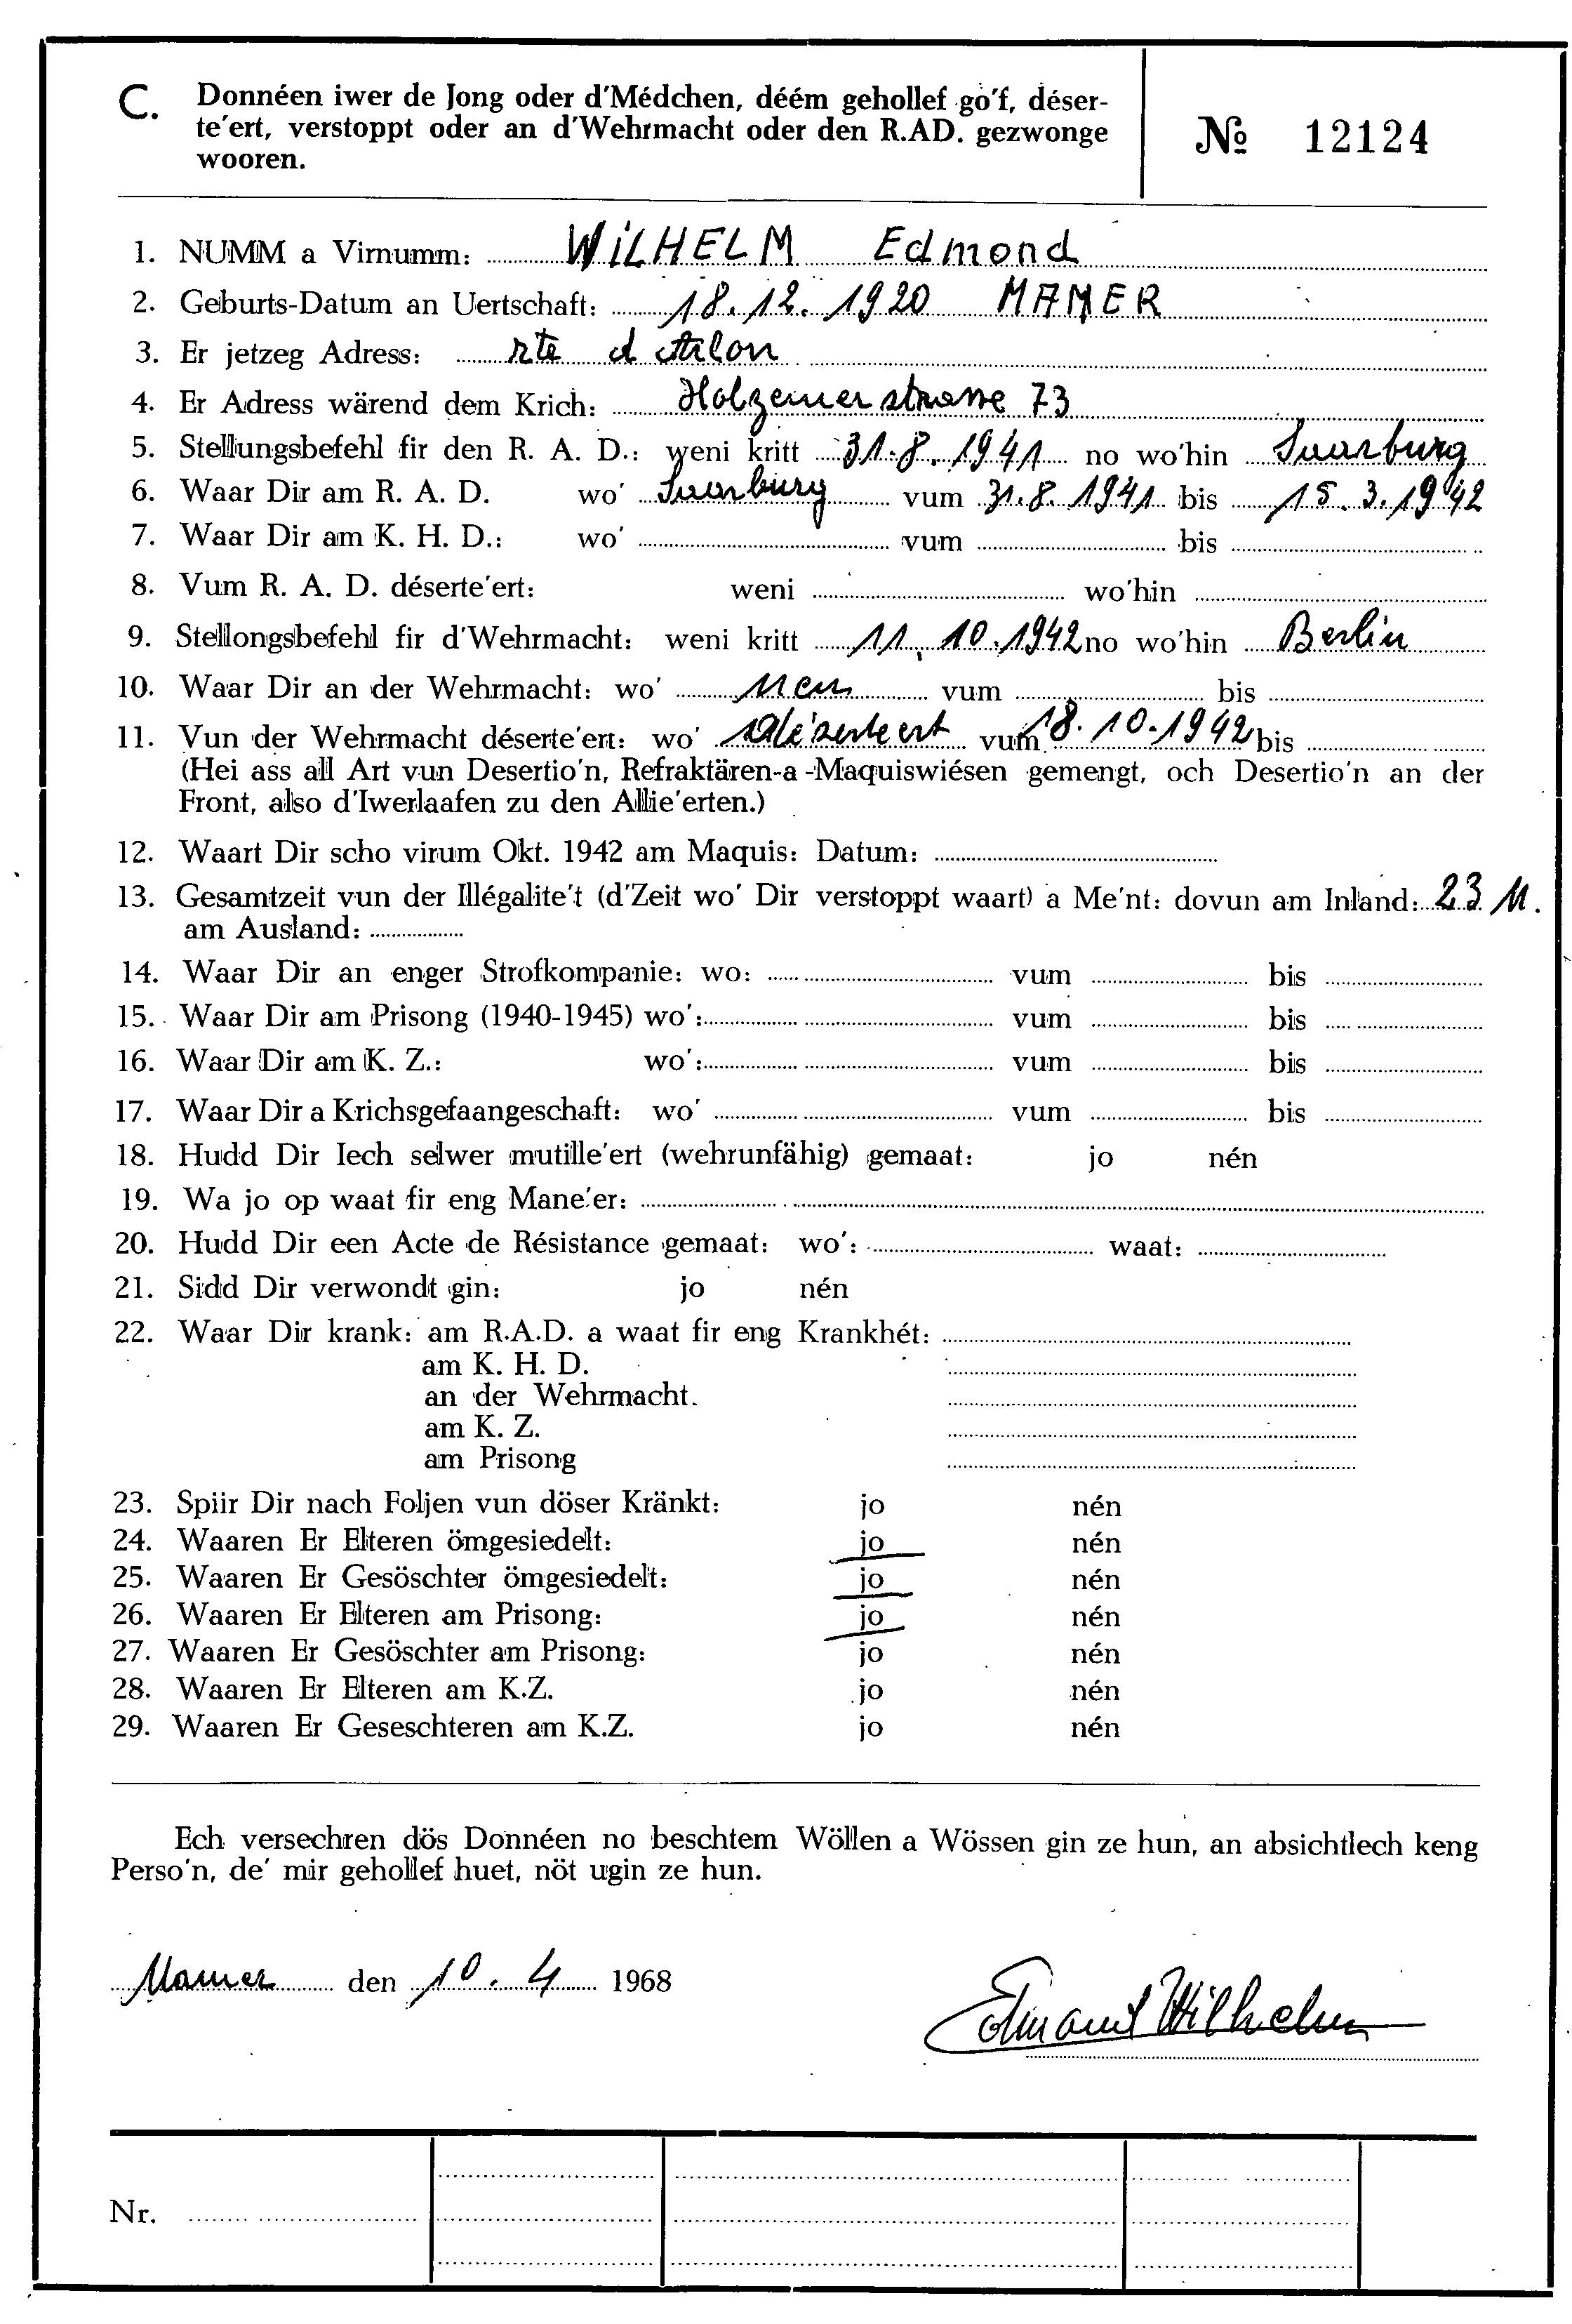 C. Donnéen iwer de Jong oder d'Médchen, déém gehollef go'f, déser-
te'ert, verstoppt oder an d'Wehrmacht oder den R.AD. gezwonge
wooren.
№ 12124
1. NUMM a Virnumm: WILHELM Edmond
2. Geburts-Datum an Uertschaft: 18.12.1920 MAMER
3. Er jetzeg Adress: rte d Arlon
4. Er Adress wärend dem Krich: Holzemerstrasse 73
5. Stellungsbefehl fir den R. A. D.: weni kritt 31.8.1941 no wo'hin Saarburg
6. Waar Dir am R. A. D. wo' Saarburg vum 31.8.1941 bis 15.3.1942
7. Waar Dir am K. H. D.: wo' vum bis
8. Vum R. A. D. déserte'ert: weni wo'hin
9. Stellongsbefehl fir d'Wehrmacht: weni kritt 11.10.1942 no wo'hin Berlin
10. Waar Dir an der Wehrmacht: wo' vum bis
11. Vun der Wehrmacht déserte'ert: wo' vum 18.10.1942 bis
(Hei ass all Art vun Desertio'n, Refraktären-a-Maquiswiésen gemengt, och Desertio'n an der
Front, also d'Iwerlaafen zu den Allie'erten.)
12. Waart Dir scho virum Okt. 1942 am Maquis: Datum:
13. Gesamtzeit vun der Illégalite't (d'Zeit wo' Dir verstoppt waart) a Me'nt: dovun am Inland: 23 M.
am Ausland:
14. Waar Dir an enger Strofkompanie: wo: vum bis
15. Waar Dir am Prisong (1940-1945) wo': vum bis
16. Waar Dir am K. Z.: wo': vum bis
17. Waar Dir a Krichsgefaangeschaft: wo' vum bis
18. Hudd Dir Iech selwer mutille'ert (wehrunfähig) gemaat: jo nén
19. Wa jo op waat fir eng Mane'er:
20. Hudd Dir een Acte de Résistance gemaat: wo': waat:
21. Sidd Dir verwondt gin: jo nén
22. Waar Dir krank: am R.A.D. a waat fir eng Krankhét:
am K. H. D.
an der Wehrmacht.
am K. Z.
am Prisong
23. Spiir Dir nach Foljen vun döser Kränkt: jo nén
24. Waaren Er Elteren ömgesiedelt: jo nén
25. Waaren Er Gesöschter ömgesiedelt: jo nén
26. Waaren Er Elteren am Prisong: jo nén
27. Waaren Er Gesöschter am Prisong: jo nén
28. Waaren Er Elteren am K.Z. jo nén
29. Waaren Er Geseschteren am K.Z. jo nén
Ech versechren dös Donnéen no beschtem Wöllen a Wössen gin ze hun, an absichtlech keng
Perso'n, de' mir gehollef huet, nöt ugin ze hun.
Mamer den 10.4 1968
Edmond Wilhelm
Nr.